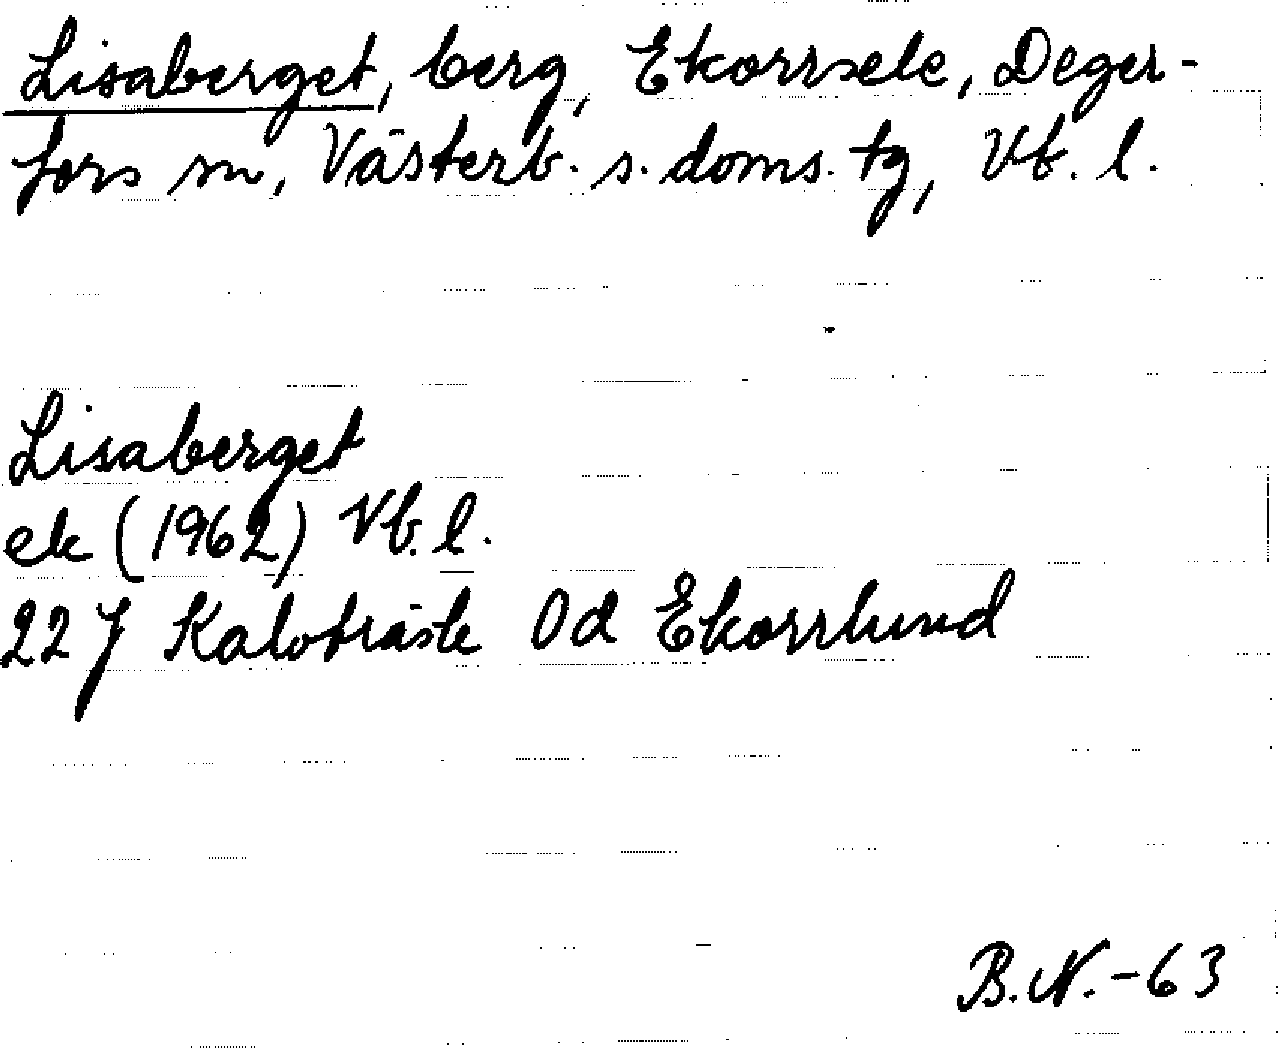 Lisaberget, berg, Ekorrsele, Deger-
fors sn, Västerb. s. doms. tg, Vb. l.
Lisaberget
ek (1962) Vb. l.
22 J Kalvträsk 0d Ekorrlund
B.N.-63